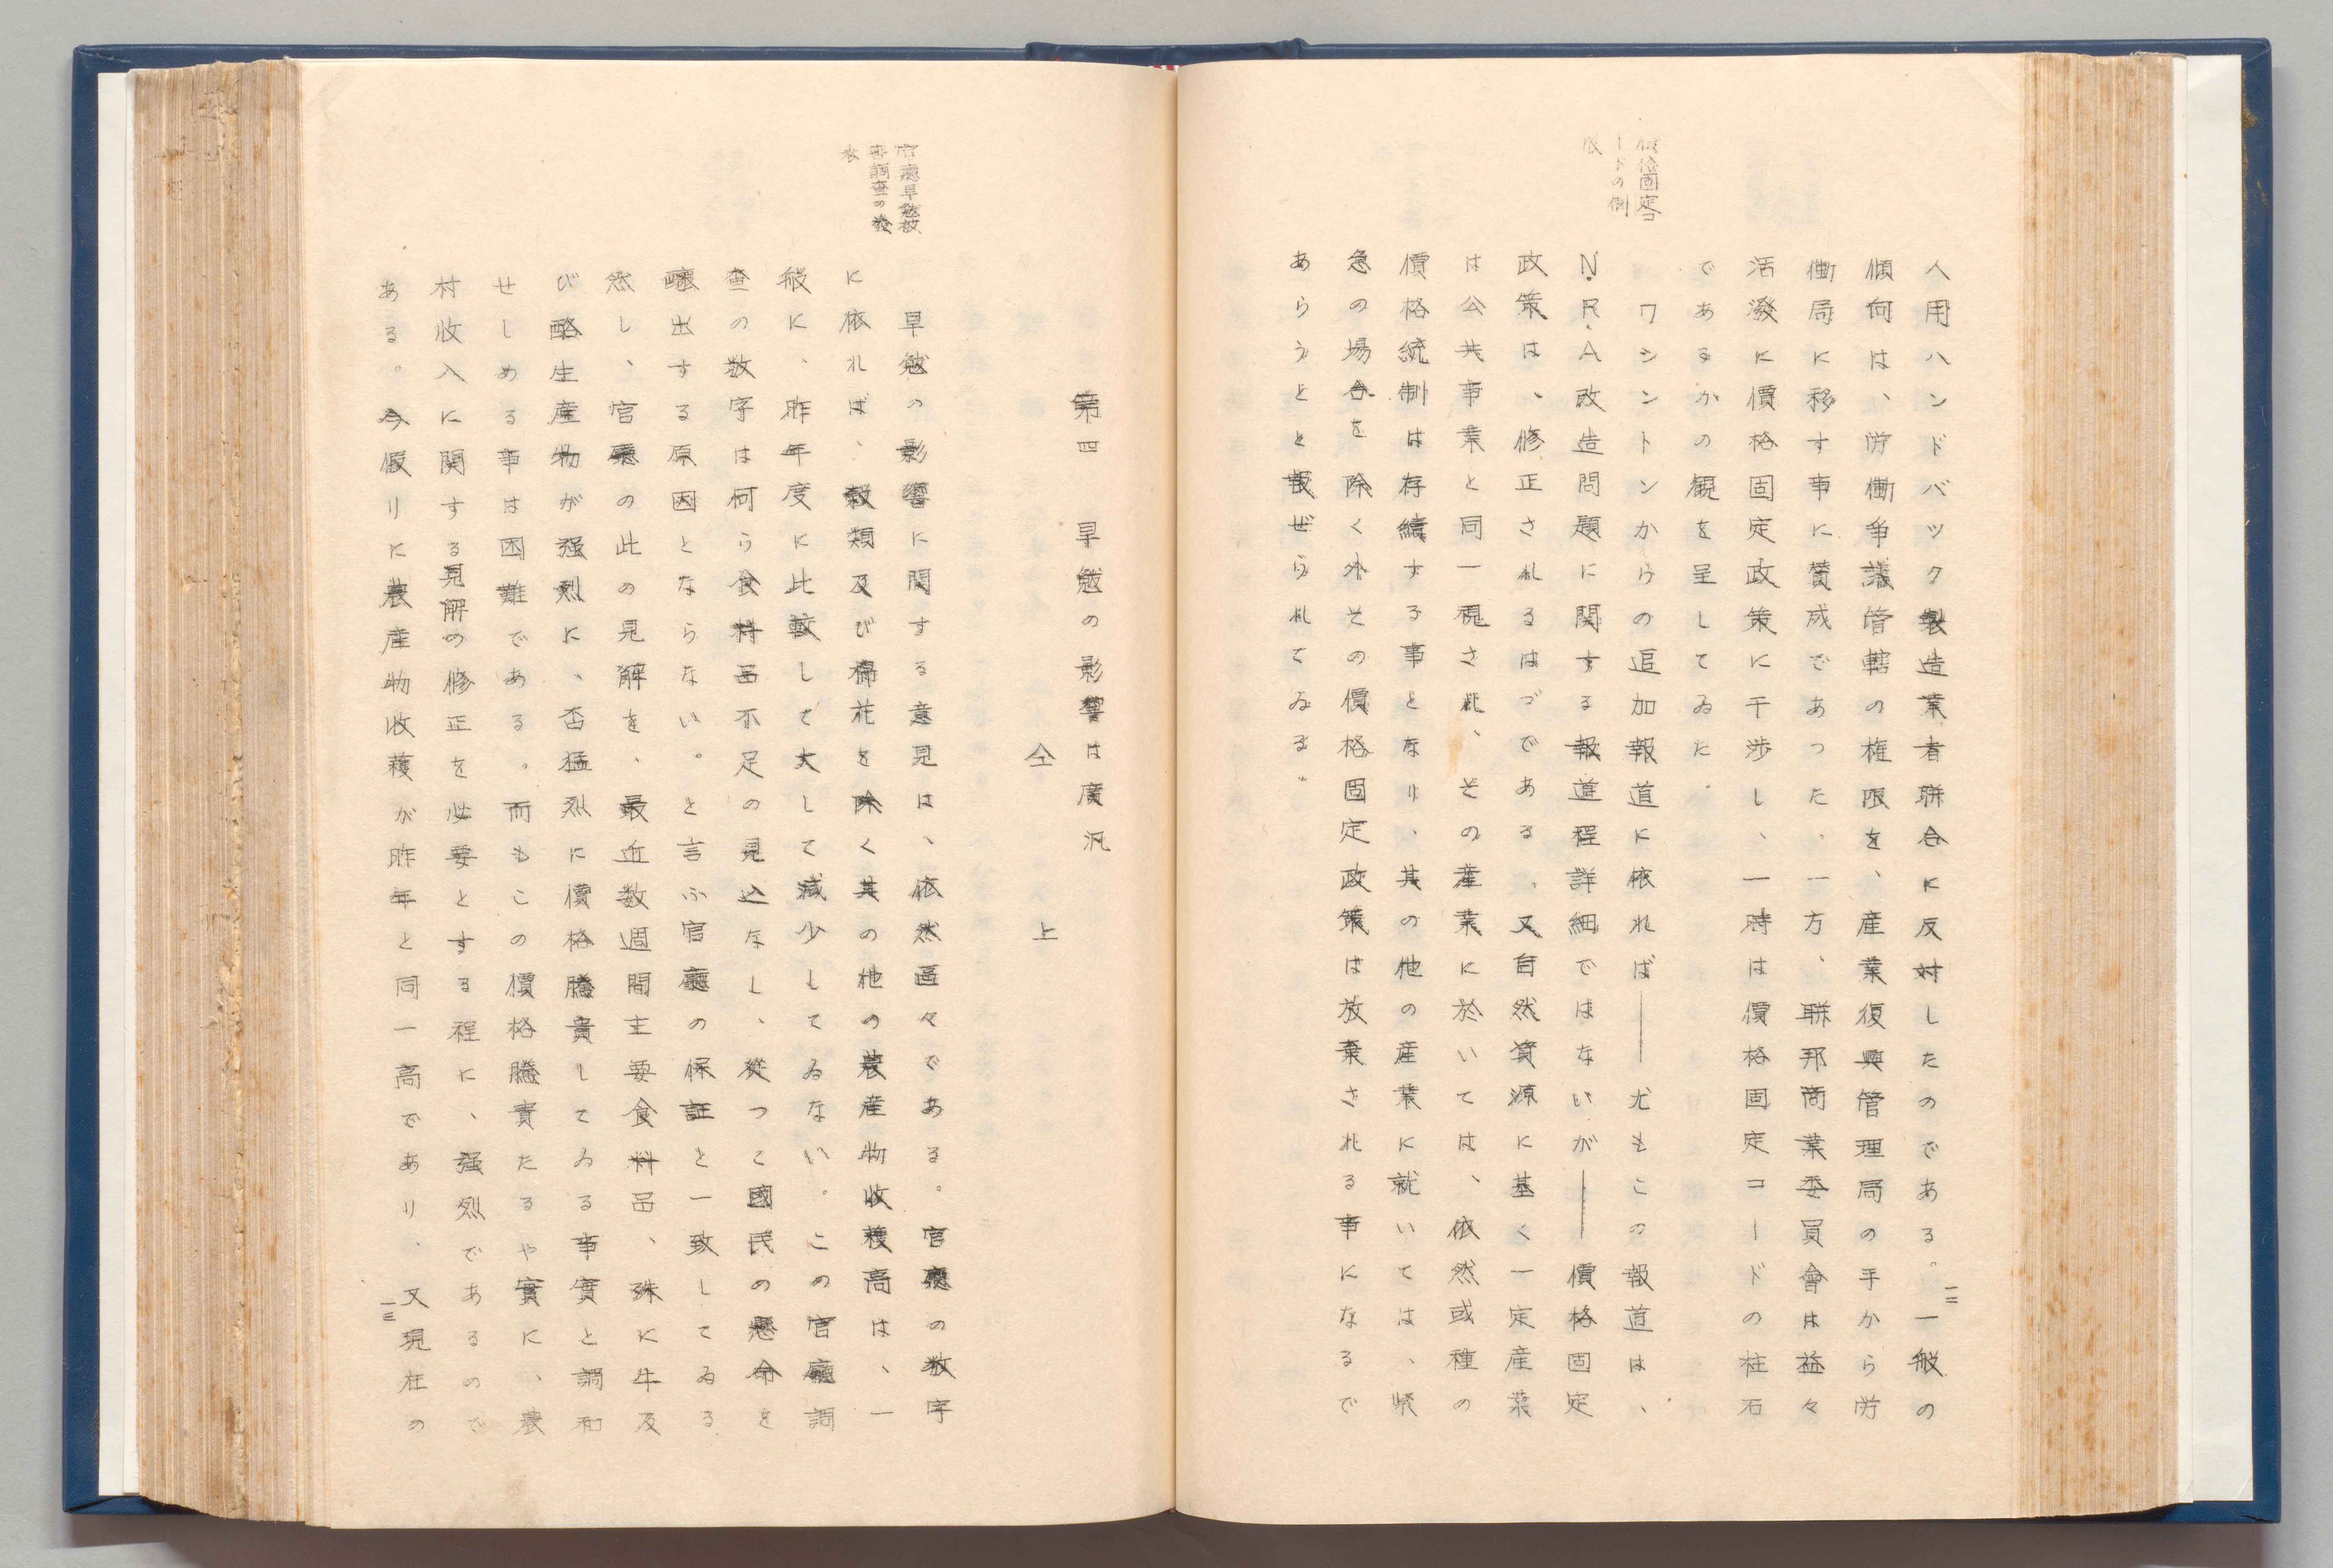 價格固定コ
ードの倒
壊
人用ハンドバツク製造業者聯合に反対したのである。一般の
傾向は、労働争議管轄の権限を、産業復興管理局の手から労
働局に移す事に賛成であつた。一方、聯邦商業委員會は益々
活潑に價格固定政策に干渉し、一時は價格固定コードの柱石
であるかの観を呈してゐた。
ワシントンからの追加報道に依れば――尤もこの報道は、
N.R.A改造問題に関する報道程詳細ではないが――價格固定
政策は、修正されるはづである。又自然資源に基く一定産業
は公共事業と同一視され、その産業に於いては、依然或種の
價格統制は存續する事となり、其の他の産業に就いては、緊
急の場合を除く外その價格固定政策は放棄される事になるで
あらうとと報ぜられてゐる。
一二
第四 旱魃の影響は廣汎
仝 上
官廳旱魃被
害調査の發
表
旱魃の影響に関する意見は、依然區々である。官廳の数字
に依れば、穀類及び棉花を除く其の他の農産物收穫高は、一
般に、昨年度に比較して大して減少してゐない。この官廳調
査の数字は何ら食料品不足の見込なし、從つて國民の懸命を
醸出する原因とならない。と言ふ官廳の保証と一致してゐる
然し、官廳の此の見解を、最近数週間主要食料品、殊に牛及
び酪生産物が强烈に、否猛烈に價格騰貴してゐる事實と調和
せしめる事は困難である。而もこの價格騰貴たるや實に、農
村收入に関する見解の修正を必要とする程に、强烈であるので
ある。今假リに農産物收穫が昨年と同一高であり、又現在の
一三